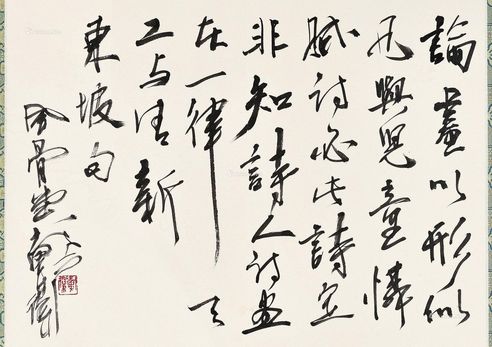 論畫以形似
見與兒童隣
賦詩必此詩定
非知詩人詩畫
本一律天
工与清新
東坡句